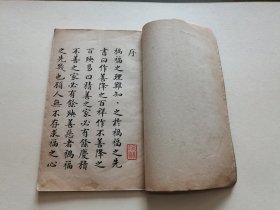 序
禍福之理難知、之於禍福之先
書曰作善降之百祥作不善降之
百殃易曰積善之家必有餘慶積
不善之家必有餘殃善惡者禍福
之先幾也人無不存求福之心